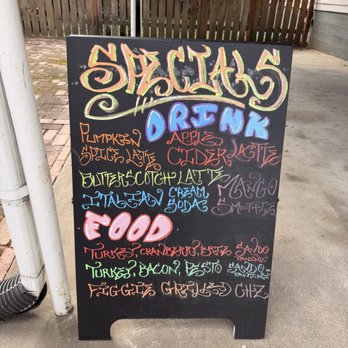 SPECIALS
DRINK
PUMPKIN SPICE LATTE
APPLE CIDER LATTE
BUTTERSCOTCH LATTE
ITALIAN CREAM SODA
MANGO SMOOTHIE
FOOD
TURKEY, CRANBERRY, BRIE SANDO
TURKEY, BACON, PESTO SANDO
GRILLED CHZ